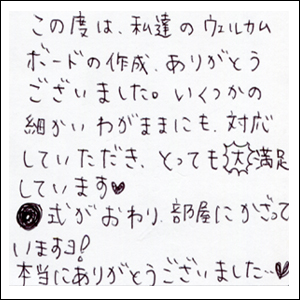 この度は、私達のウェルカム
ボードの作成、ありがとう
ございました。いくつかの
細かいわがままにも、対応
していただき、とっても大満足
しています♥
●式がおわり、部屋にかざって
いますヨ!
本当にありがとうございました…♥